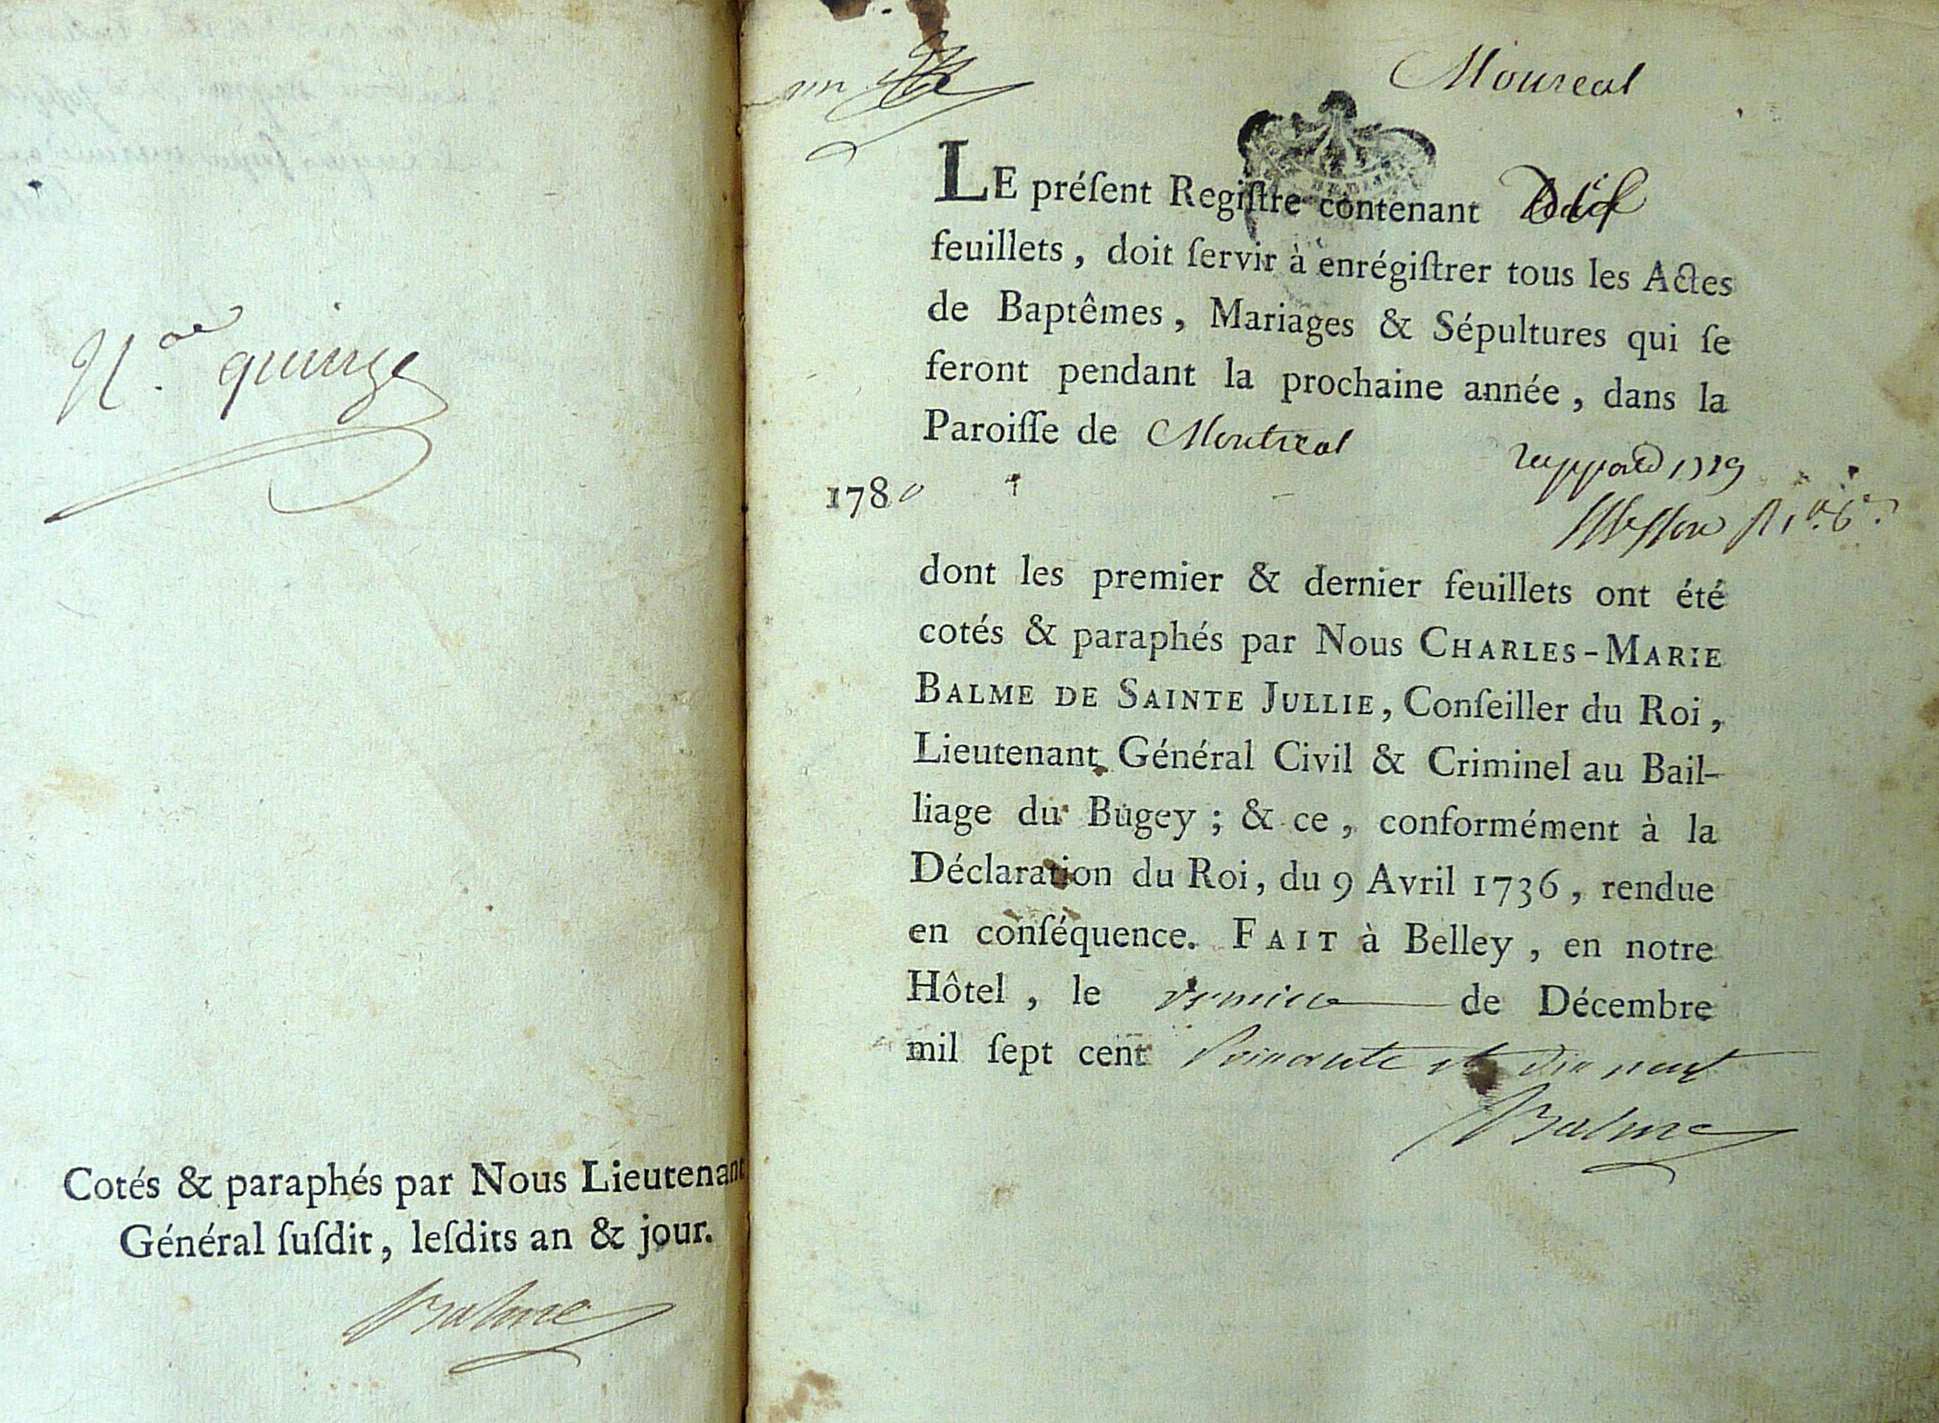 N.º quinze
Cotés & paraphés par Nous Lieutenant
Général ſuſdit, leſdits an & jour.
Balme
un
Montreal
LE préſent Regiſtre contenant
feuillets, doit ſervir à enrégiſtrer tous les Actes
de Baptêmes, Mariages & Sépultures qui ſe
feront pendant la prochaine année, dans la
Paroiſſe de Montreal
1780
dont les premier & dernier feuillets ont été
cotés & paraphés par Nous CHARLES-MARIE
BALME DE SAINTE JULLIE, Conſeiller du Roi,
Lieutenant Général Civil & Criminel au Bail-
liage du Bugey; & ce, conformément à la
Déclaration du Roi, du 9 Avril 1736, rendue
en conſéquence. FAIT à Belley, en notre
Hôtel, le de Décembre
mil ſept cent soixante et dix neuf
Balme